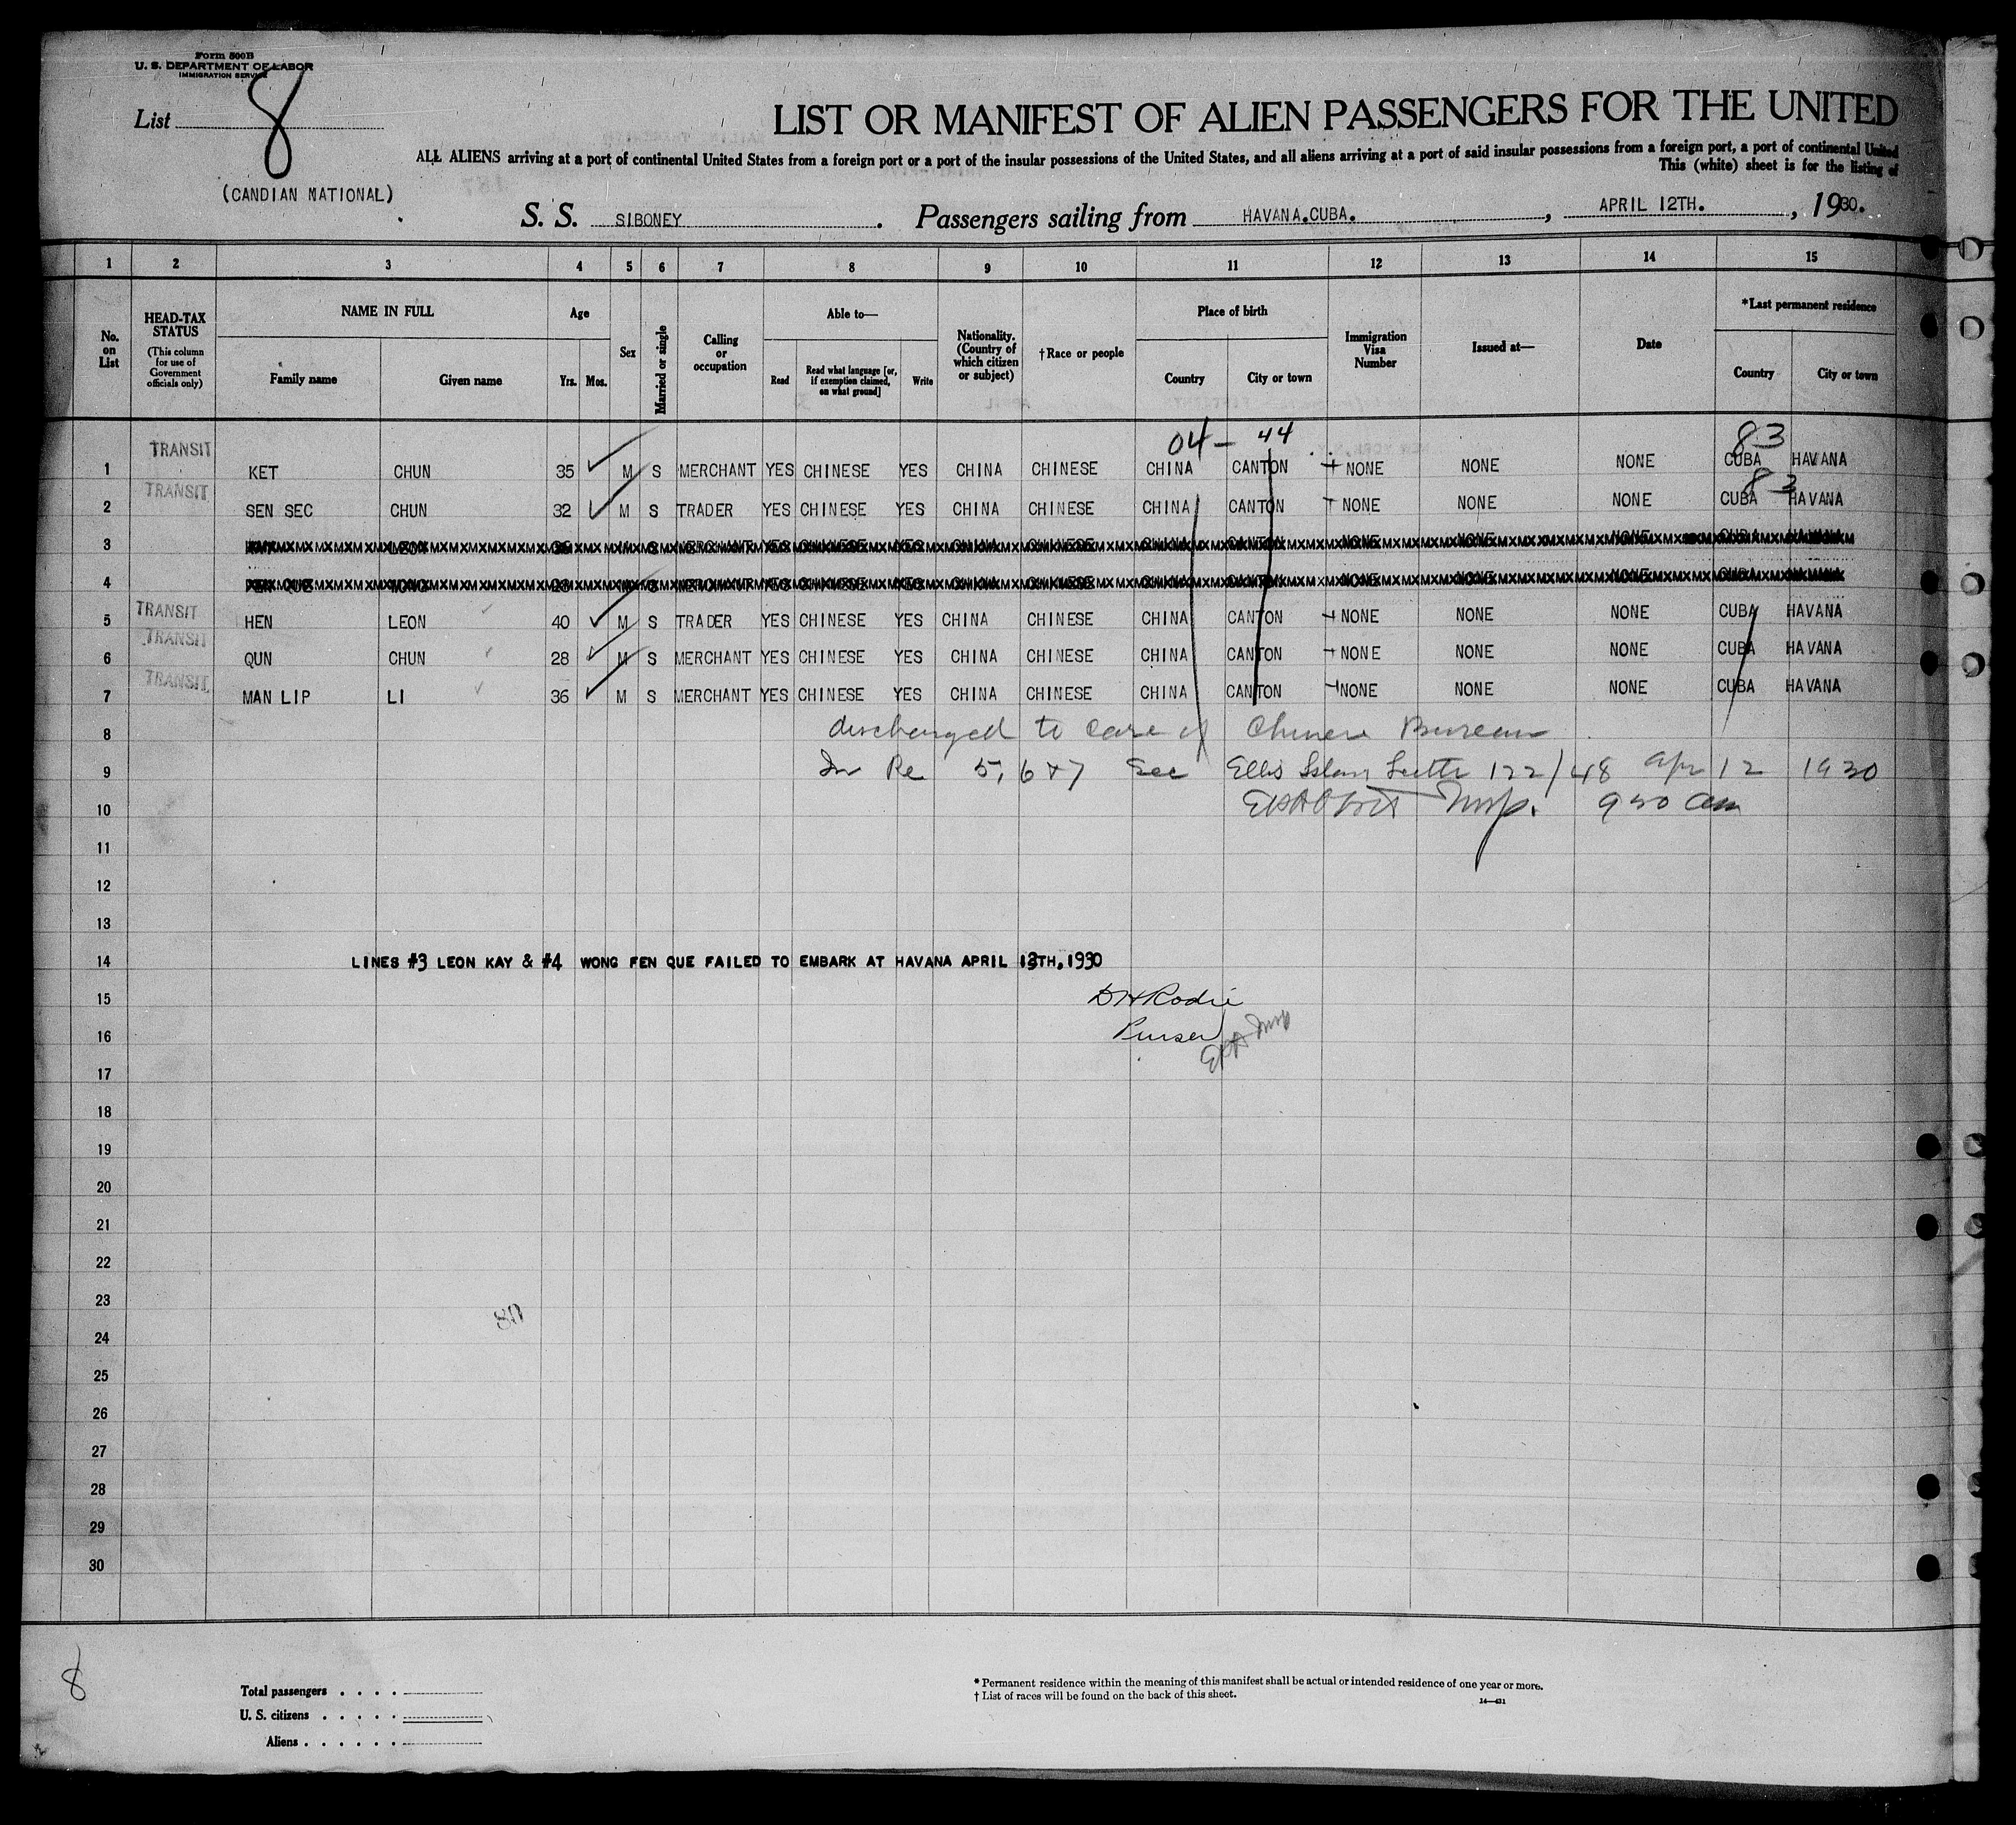 Form 500B
U. S. DEPARTMENT OF LABOR
IMMIGRATION SERVICE
List 8
LIST OR MANIFEST OF ALIEN PASSENGERS FOR THE UNITED
ALL ALIENS arriving at a port of continental United States from a foreign port or a port of the insular possessions of the United States, and all aliens arriving at a port of said insular possessions from a foreign port, a port of continental United
This (white) sheet is for the listing of
(CANDIAN NATIONAL)
S. S. SIBONEY. Passengers sailing from HAVANA.CUBA., APRIL 12TH., 1930.
1 2 3 4 5 6 7 8 9 10 11 12 13 14 15
No. on List
HEAD-TAX STATUS
(This column for use of Government officials only)
NAME IN FULL
Family name Given name
Age
Yrs. Mos.
Sex
Married or single
Calling or occupation
Able to—
Read
Read what language [or, if exemption claimed, on what ground]
Write
Nationality. (Country of which citizen or subject)
†Race or people
Place of birth
Country City or town
Immigration Visa Number
Issued at—
Date
*Last permanent residence
Country City or town
04 - 44 83
TRANSIT
1 KET CHUN 35 M S MERCHANT YES CHINESE YES CHINA CHINESE CHINA CANTON NONE NONE NONE CUBA HAVANA
TRANSIT 83
2 SEN SEC CHUN 32 M S TRADER YES CHINESE YES CHINA CHINESE CHINA CANTON NONE NONE NONE CUBA HAVANA
3 LEON S MERCHANT YES CHINESE YES CHINA CHINESE CHINA CANTON NONE NONE NONE CUBA HAVANA
4 FEN QUE WONG 28 M S MERCHANT YES CHINESE YES CHINA CHINESE CHINA CANTON NONE NONE NONE CUBA HAVANA
TRANSIT
5 HEN LEON 40 M S TRADER YES CHINESE YES CHINA CHINESE CHINA CANTON NONE NONE NONE CUBA HAVANA
TRANSIT
6 QUN CHUN 28 M S MERCHANT YES CHINESE YES CHINA CHINESE CHINA CANTON NONE NONE NONE CUBA HAVANA
TRANSIT
7 MAN LIP LI 36 M S MERCHANT YES CHINESE YES CHINA CHINESE CHINA CANTON NONE NONE NONE CUBA HAVANA
8 discharged to care of Chinese Bureau
9 In Re 5, 6 & 7 See Ellis Island Letter 122/48 Apr 12 1930
10 Insp. 9 30 am
11
12
13
14 LINES #3 LEON KAY & #4 WONG FEN QUE FAILED TO EMBARK AT HAVANA APRIL 13TH, 1930
15 D H Rodie
16 Purser Insp
17
18
19
20
21
22
23
24
25
26
27
28
29
30
8
Total passengers . . . .
U. S. citizens . . . . .
Aliens . . . . . .
* Permanent residence within the meaning of this manifest shall be actual or intended residence of one year or more.
† List of races will be found on the back of this sheet.
14—431